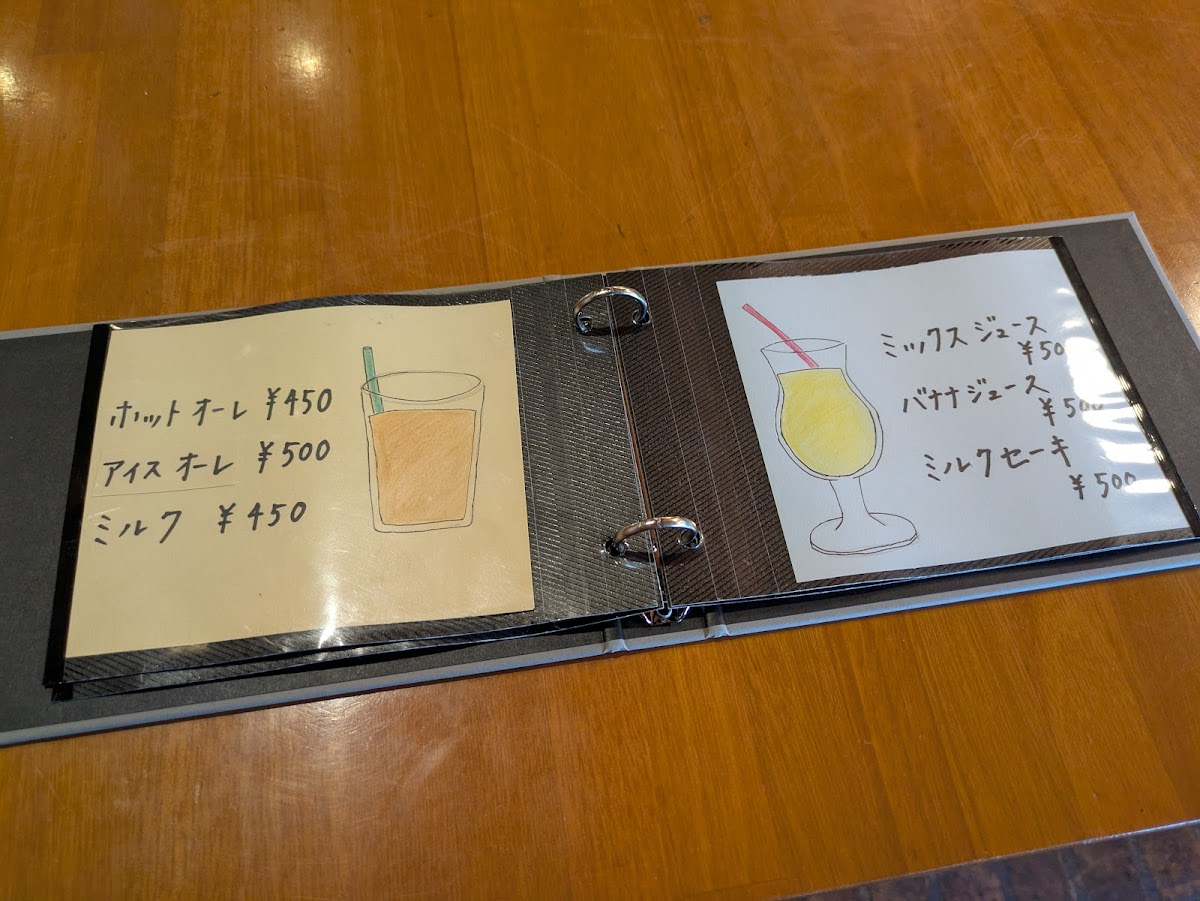 ホットオーレ ¥450
アイスオーレ ¥500
ミルク ¥450
ミックスジュース
¥50
バナナジュース
¥500
ミルクセーキ
¥500